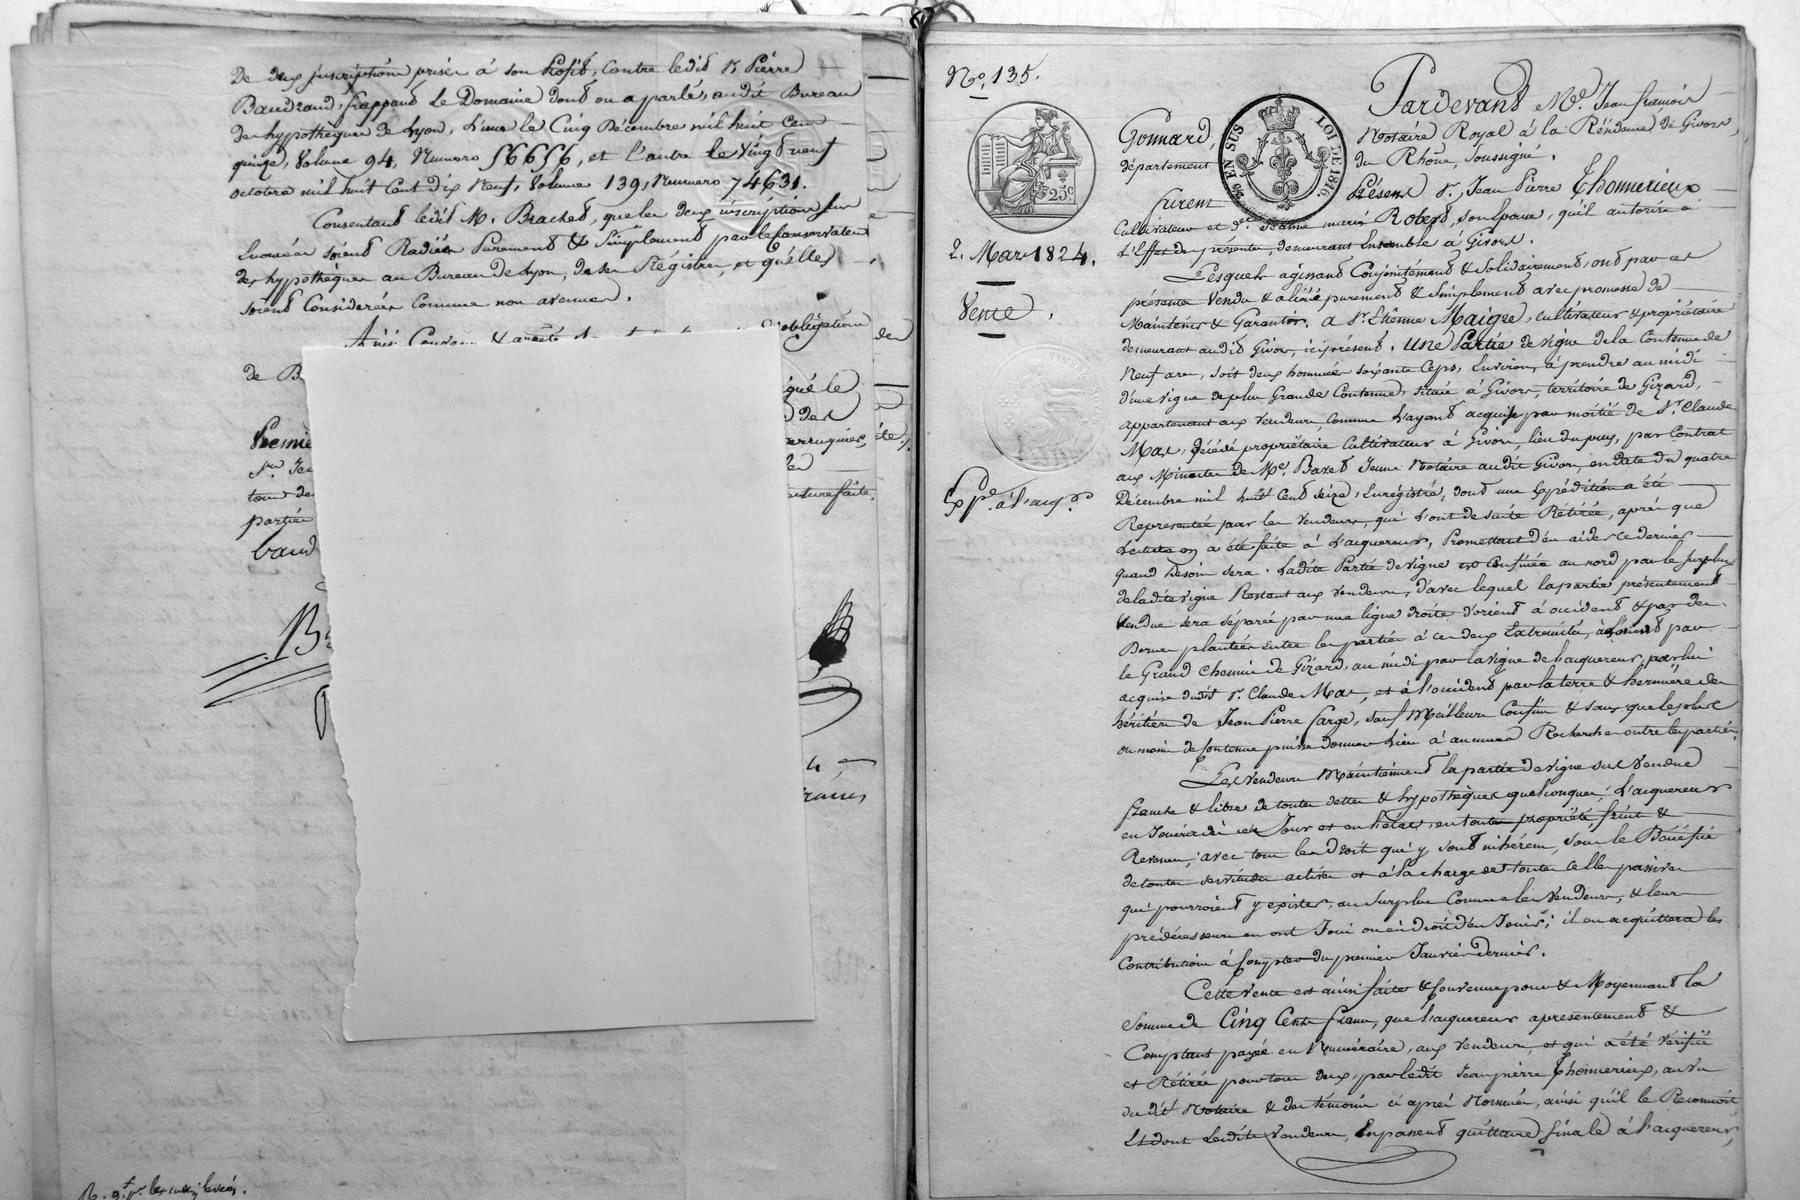 De deux inscriptions prises à son Profit, Contre ledit Sr Pierre
Baudrand, frappant Le Domaine dont on a parlé, au dit Bureau
des hypothèques de Lyon, L'une le Cinq Décembre mil huit cent
quinze, Volume 94, Numero 56656, et l'autre le vingt neuf
octobre mil huit Cent dix Neuf, Volume 139, Numero 74631.
Consentant ledit Mr. Brachet, que les deux inscriptions sus
Enoncées soient Radiées Purement & Simplement par le Conservateur
des hypothèques au Bureau de Lyon, de ses Régistres, et qu'elles
soient Considerées Comme non avenues.
obligation
de B
Premiè
partie
lecture faite,
No. 135.
2. Mars 1824.
Vente,
Exp. à l'acq.
25c
EN SUS
LOI DE 1816.
Pardevant Me. Jean françois
Gonnard, Notaire Royal à la Résidence de Givors,
département du Rhône, Soussigné.
Furent Présens Sr. Jean Pierre Thomerieux
Cultivateur et De. Jeanne marie Robert, son Epouse, qu'il autorise à
L'Effet des présentes, demeurans Ensemble à Givors.
Lesquels agissant Conjointement & Solidairement, ont par ces
présentes Vendu & aliéné purement & Simplement avec promesse de
Maintenir & Garantir, a Sr. Etienne Maigre, cultivateur & propriétaire
demeurant audit Givors, ici présent, une Partie de vigne de la Contenue de
Neuf ares, soit deux hommées soixante Ceps, Environ, à prendre au midi
d'une vigne de plus Grande Contenue, située à Givors, territoire de Gizard,
appartenant aux vendeurs, comme L'ayant acquise par moitié de Sr. Claude
Mas, décédé propriétaire Cultivateur à Givors, lieu du puy, par Contrat
aux Minutes de Me. Baret Jeune Notaire audit Givors, en date du quatre
Décembre mil huit Cent Seize, Enregistré, dont une Expédition a été
Representée par les Vendeurs, qui L'ont de suite Rétirée, après que
Lecture en a été faite à L'acquereur, Promettant d'en aider ce dernier
quand Besoin sera. Ladite Partie de vigne est Confinée au nord par le Surplus
de ladite vigne Restant aux vendeurs, d'avec lequel la partie présentement
Vendue sera séparée par une ligne droite d'orient à occident & par des
Bornes plantées entre les parties à ces deux Extremités, à L'orient par
le Grand Chemin de Gizard, au midi par la vigne de L'acquereur, par lui
acquise dudit Sr. Claude Mas, et à L'occident par la terre & hermure des
héritiers de Jean Pierre Farge, sauf Meilleurs Confins & sans que le plus
ou moins de Contenue puisse donner Lieu à aucunes Recherches entre les parties.
Les Vendeurs Maintiennent la partie de vigne sus Vendue
franche & libre de toutes dettes & hypothèques quelconques; L'acquereur
en Jouira dès ce Jour et en l'état, en toute propriété, fruit &
Revenus, avec tous les Droits qui y sont inhérens, sous le Bénéfice
de toutes servitudes actives et à la charge de toutes celles passives
qui pourroient y exister, au Surplus Comme les Vendeurs, & leurs
prédécesseurs en ont Joui ou eu droit d'en Jouir; il en acquittera les
Contributions à Compter du premier Janvier dernier.
Cette vente est ainsi faite & Convenue pour & Moyennant la
Somme de Cinq Cents francs, que L'acquereur a presentement &
Comptant payée en Numéraire, aux vendeurs, et qui a été vérifiée
et Rétirée pour tous deux, par ledit Jean pierre Thomerieux, au vu
du dit Notaire & des témoins ci après Nommés, ainsi qu'il le Reconnoit
Et dont Lesdits Vendeurs, En passent quittance finale à l'acquereur,